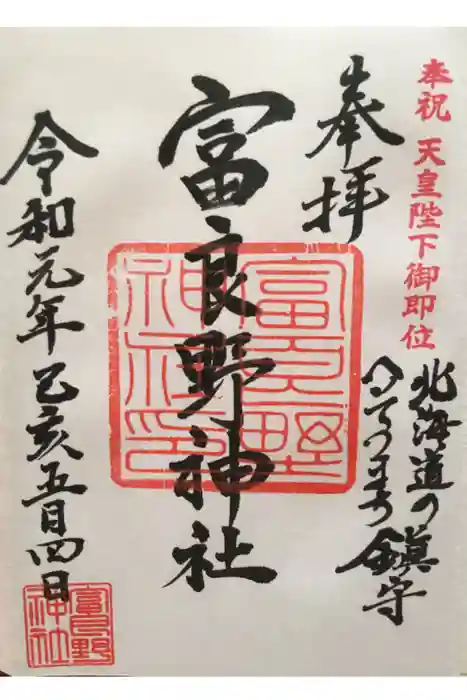 奉祝 天皇陛下御即位
北海道の
へそのまち
鎮守
奉拝
富良野神社
富良野
神社印
令和元年己亥五月四日
富良野
神社